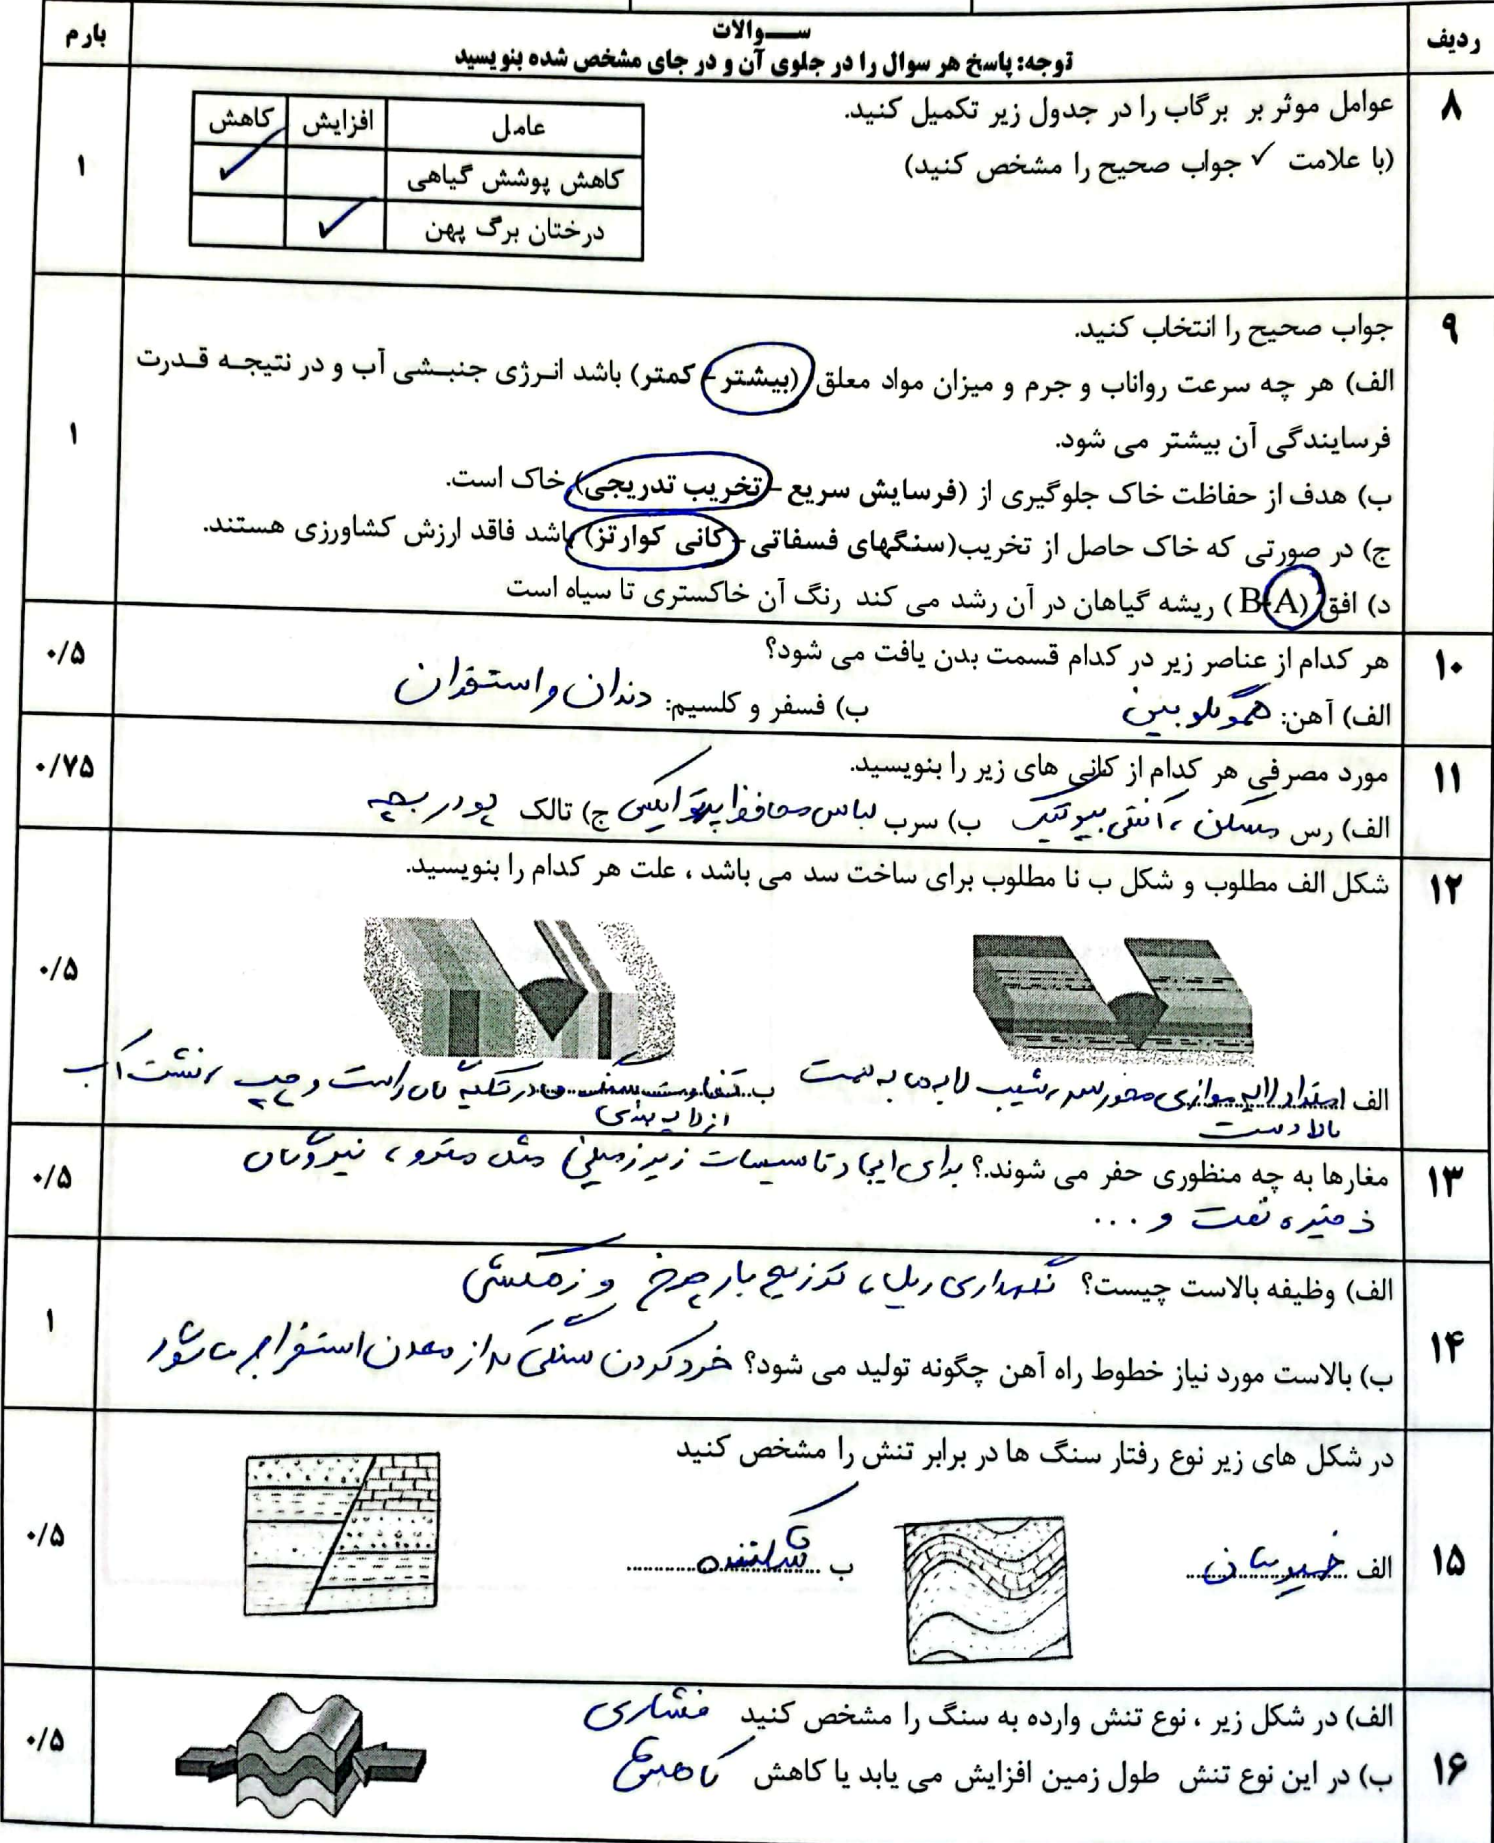 ردیف
ســـوالات
توجه: پاسخ هر سوال را در جلوی آن و در جای مشخص شده بنویسید
بارم
۸
عوامل موثر بر برگاب را در جدول زیر تکمیل کنید.
(با علامت ✓ جواب صحیح را مشخص کنید)
عامل افزایش کاهش
کاهش پوشش گیاهی ✓
درختان برگ پهن ✓
۱
۹
جواب صحیح را انتخاب کنید.
الف) هر چه سرعت رواناب و جرم و میزان مواد معلق (بیشتر - کمتر) باشد انـرژی جنبـشی آب و در نتیجـه قـدرت
فرسایندگی آن بیشتر می شود.
ب) هدف از حفاظت خاک جلوگیری از (فرسایش سریع - تخریب تدریجی) خاک است.
ج) در صورتی که خاک حاصل از تخریب(سنگهای فسفاتی - کانی کوارتز) باشد فاقد ارزش کشاورزی هستند.
د) افق (B-A) ریشه گیاهان در آن رشد می کند رنگ آن خاکستری تا سیاه است
۱
۱۰
هر کدام از عناصر زیر در کدام قسمت بدن یافت می شود؟
الف) آهن: هموگلوبین ب) فسفر و کلسیم: دندان و استخوان
۰/۵
۱۱
مورد مصرفی هر کدام از کانی های زیر را بنویسید.
الف) رس مسکن ، آنتی بیوتیک ب) سرب لباس محافظ پرتو ایکس ج) تالک پودر بچه
۰/۷۵
۱۲
شکل الف مطلوب و شکل ب نا مطلوب برای ساخت سد می باشد ، علت هر کدام را بنویسید.
الف امتداد لایه موازی محور سد ، شیب لایه ها به سمت
بالا دست
ب تفاوت سنگ ها در تکیه گاه راست و چپ ، نشت آب
از لایه بندی
۰/۵
۱۳
مغارها به چه منظوری حفر می شوند.؟ برای ایجاد تاسیسات زیرزمینی مثل مترو ، نیروگاه
ذخیره نفت و ...
۰/۵
۱۴
الف) وظیفه بالاست چیست؟ نگهداری ریل ، توزیع بار چرخ و زهکشی
ب) بالاست مورد نیاز خطوط راه آهن چگونه تولید می شود؟ خرد کردن سنگی که از معدن استخراج می شود
۱
۱۵
در شکل های زیر نوع رفتار سنگ ها در برابر تنش را مشخص کنید
الف خمیرسان ب شکننده
۰/۵
۱۶
الف) در شکل زیر ، نوع تنش وارده به سنگ را مشخص کنید فشاری
ب) در این نوع تنش طول زمین افزایش می یابد یا کاهش کاهش
۰/۵